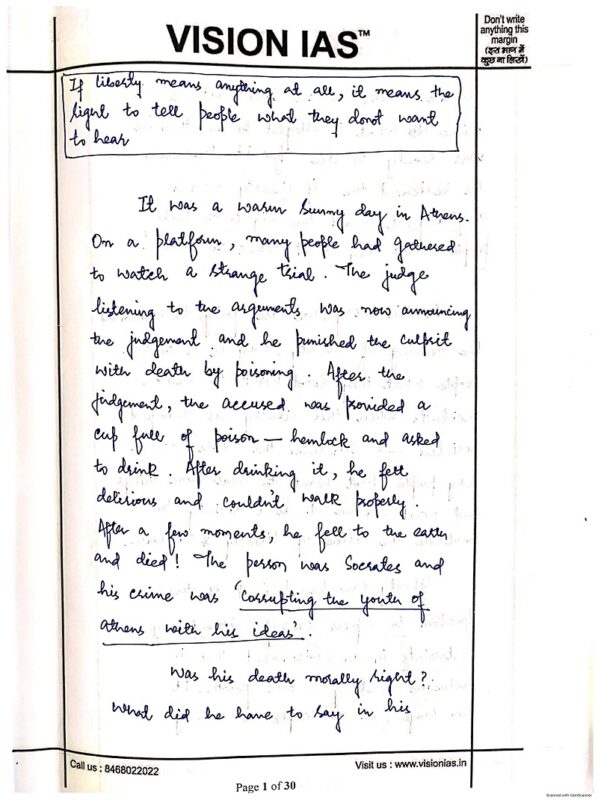 VISION IAS™
Don't write
anything this
margin
(इस भाग में
कुछ ना लिखें)
If liberty means anything at all, it means the
right to tell people what they donot want
to hear
It was a warm sunny day in Athens.
On a platform, many people had gathered
to watch a strange trial. The judge
listening to the arguments was now announcing
the judgement and he punished the culprit
with death by poisoning. After the
judgement, the accused was provided a
cup full of poison – hemlock and asked
to drink. After drinking it, he felt
delirious and couldn't walk properly.
After a few moments, he fell to the earth
and died! The person was Socrates and
his crime was 'corrupting the youth of
Athens with his ideas'.
Was his death morally right?
What did he have to say in his
Call us : 8468022022
Visit us : www.visionias.in
Page 1 of 30
Scanned with CamScanner